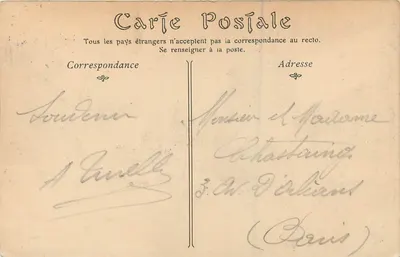 Carte Postale
Tous les pays étrangers n'acceptent pas la correspondance au recto.
Se renseigner à la poste.
Correspondance
Adresse
Souvenir
Monsieur et Madame
Chastaing
3. Av. D'orléans
(Paris)